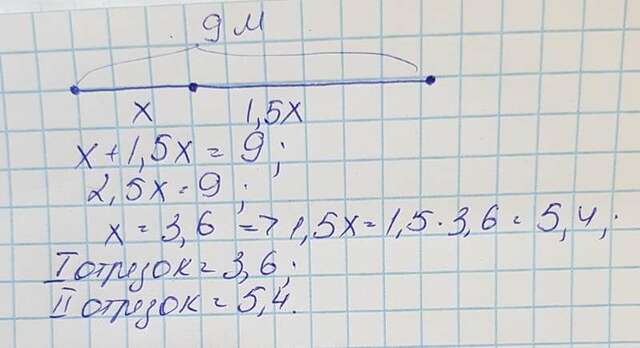 9 м
х 1,5х
х + 1,5х = 9 ;
2,5х = 9 ;
х = 3,6 => 1,5х = 1,5 · 3,6 = 5,4 ;
I отрезок = 3,6 ;
II отрезок = 5,4.